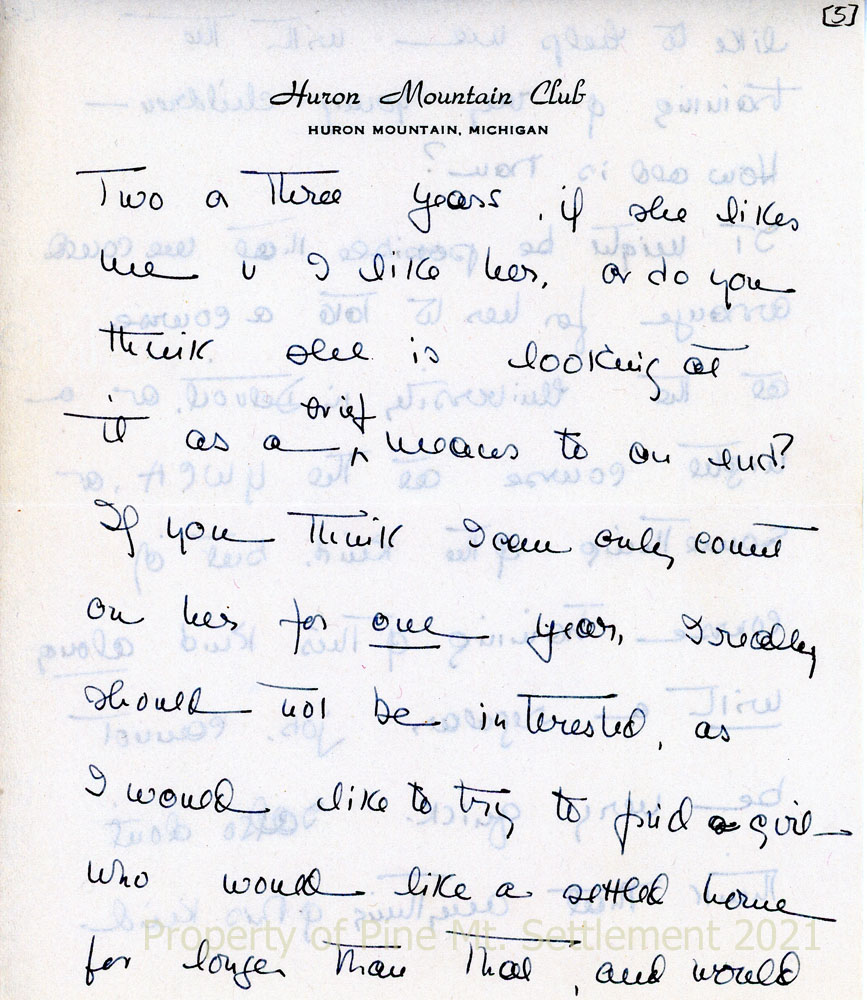 [5]
Huron Mountain Club
HURON MOUNTAIN, MICHIGAN
Two or three years, if she likes
me & I like her, or do you
think she is looking at
it as a brief means to an end?
If you think I can only count
on her for one year, I really
should not be interested, as
I would like to try to find a girl
who would like a settled home
for longer than that, and would
Property of Pine Mt. Settlement 2021